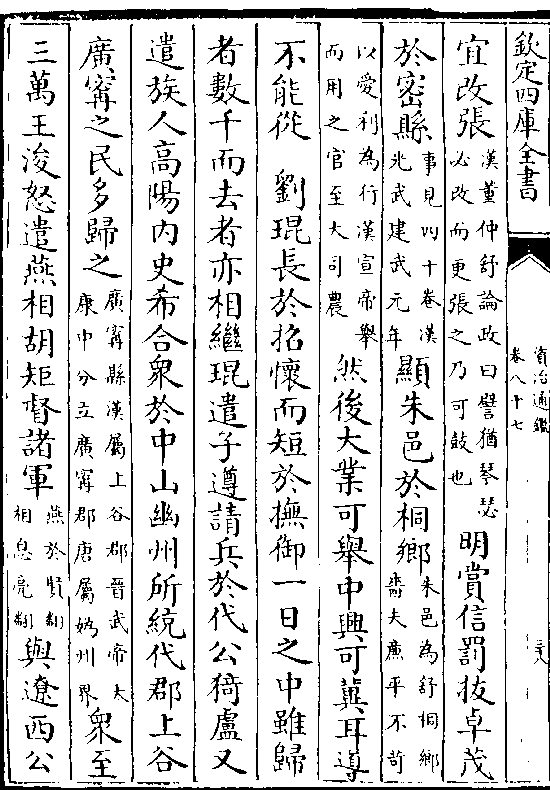 欽定四庫全書
資治通鑑
卷八十七
宜改張
漢董仲舒論政曰譬猶琴瑟
必改而更張之乃可鼓也
明賞信罰拔卓茂
於密縣
事見四十卷漢
光武建武元年
顯朱邑於桐鄉
朱邑為舒桐鄉
嗇夫廉平不苛
以愛利為行漢宣帝舉
而用之官至大司農
然後大業可舉中興可冀耳導
不能從　劉琨長於招懷而短於撫御一日之中雖歸
者數千而去者亦相繼琨遣子遵請兵於代公猗盧又
遣族人高陽内史希合衆於中山幽州所統代郡上谷
廣甯之民多歸之
廣甯縣漢屬上谷郡晉武帝太
康中分立廣甯郡唐屬媯州界
衆至
三萬王浚怒遣燕相胡矩督諸軍
燕於賢翻
相息亮翻
與遼西公